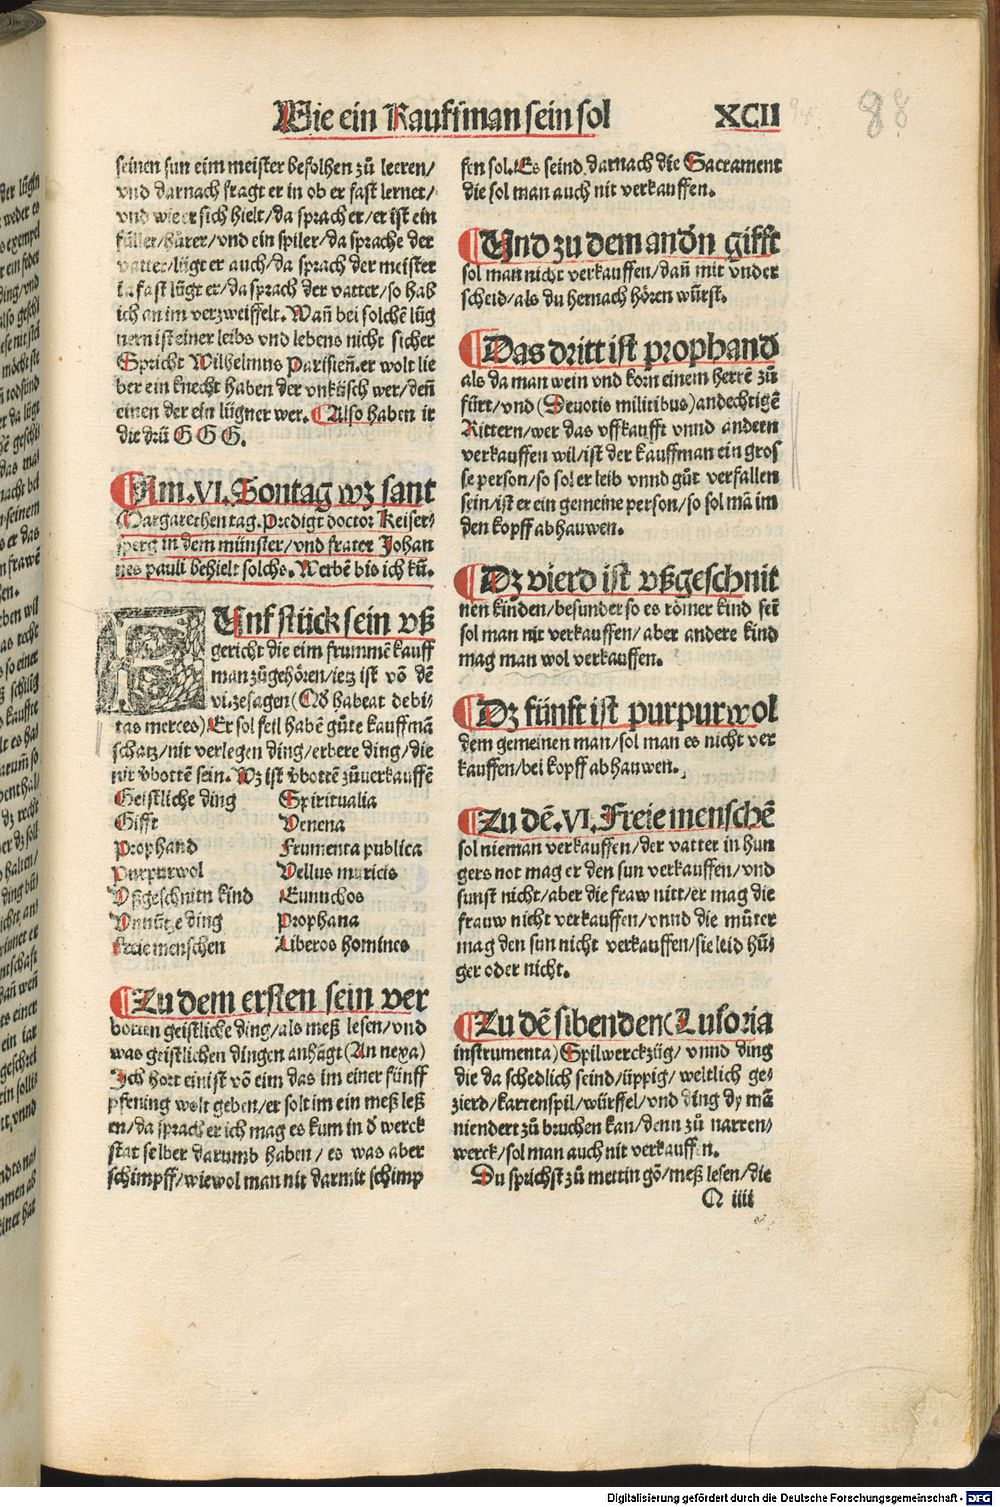 Wie ein Kauffman sein sol XCII
88
seinen sun eim meister befolhen zů leeren/
vnd darnach fragt er in ob er fast lernet/
vnd wie er sich hielt/da sprach er/er ist ein
füller/hůrer/vnd ein spiler/da sprache der
vatter/lügt er auch/da sprach der meister
ia fast lügt er/da sprach der vatter/so hab
ich an im verzweiffelt. Wañ bei solchẽ lüg
nern ist einer leibs vnd lebens nicht sicher
Spricht Wilhelmus Parisieñ. er wolt lie
ber ein knecht haben der vnküsch wer/deñ
einen der ein lügner wer. Also haben ir
die drü G G G.
Am .VI. Sontag wz sant
Margarethen tag. Predigt doctor Keisers⸗
sperg in dem münster/vnd frater Johan
nes pauli behielt solchs. Werbẽ bis ich kũ.
FUnf stück sein vß
gericht die eim frummẽ kauff
man zůgehören/ietz ist võ dẽ
vi. zesagen (Qđ habeat debi⸗
tas merces) Er sol feil habẽ gůte kauffmã
schatz/nit verlegen ding/erbere ding/die
nit vbottẽ sein. Wz ist vbottẽ zůuerkauffẽ
Geistliche ding Spiritualia
Gifft Venena
Prophand Frumenta publica
Purpurwol Vellus muricis
Vßgeschnitn kind Eunuchos
Vnnütze ding Prophana
Freie menschen Liberos homines
Zu dem ersten sein ver
botten geistliche ding/als meß lesen/vnd
was geistlichen dingen anhãgt (Annexa)
Ich hort einist võ eim das im einer fünff
pfening wolt geben/er solt im ein meß leß
en/da sprach er ich mag es kum in đ werck
stat selber darumb haben/ es was aber
schimpff/wiewol man nit darmit schimp
fen sol. Es seind darnach die Sacrament
die sol man auch nit verkauffen.
Und zu dem andn gifft
sol man nicht verkauffen/dañ mit vnder
scheid/als du hernach hören würst.
Das dritt ist prophand
als da man wein vnd korn einem herrẽ zů
fürt/vnd (Deuotis militibus) andechtigẽ
Rittern/wer das vffkaufft vnnd andern
verkauffen wil/ist der kauffman ein gros
se person/so sol er leib vnnd gůt verfallen
sein/ist er ein gemeine person/so sol mã im
den kopff abhauwen.
Dz vierd ist vßgeschnit
nen kinden/besunder so es römer kind seĩ
sol man nit verkauffen/ aber andere kind
mag man wol verkauffen.
Dz fünft ist purpurwol
dem gemeinen man/sol man es nicht ver
kauffen/bei kopff abhauwen.
Zu dẽ .VI. Freie menschẽ
sol nieman verkauffen/der vatter in hun
gers not mag er den sun verkauffen/vnd
sunst nicht/aber die fraw nitt/er mag die
frauw nicht verkauffen/vnnd die můter
mag den sun nicht verkauffen/sie leid hũ⸗
ger oder nicht.
Zu dẽ sibenden (Lusoria
instrumenta) Spilwerckzüg/ vnnd ding
die da schedlich seind/üppig/ weltlich ge⸗
zierd/kartenspil/würffel/vnd ding dy mã
niendert zů bruchen kan/denn zů narren⸗
werck/sol man auch nit verkauffen.
Du sprichst zů mettin gõ/meß lesen/die
Q iiii
Digitalisierung gefördert durch die Deutsche Forschungsgemeinschaft - DFG